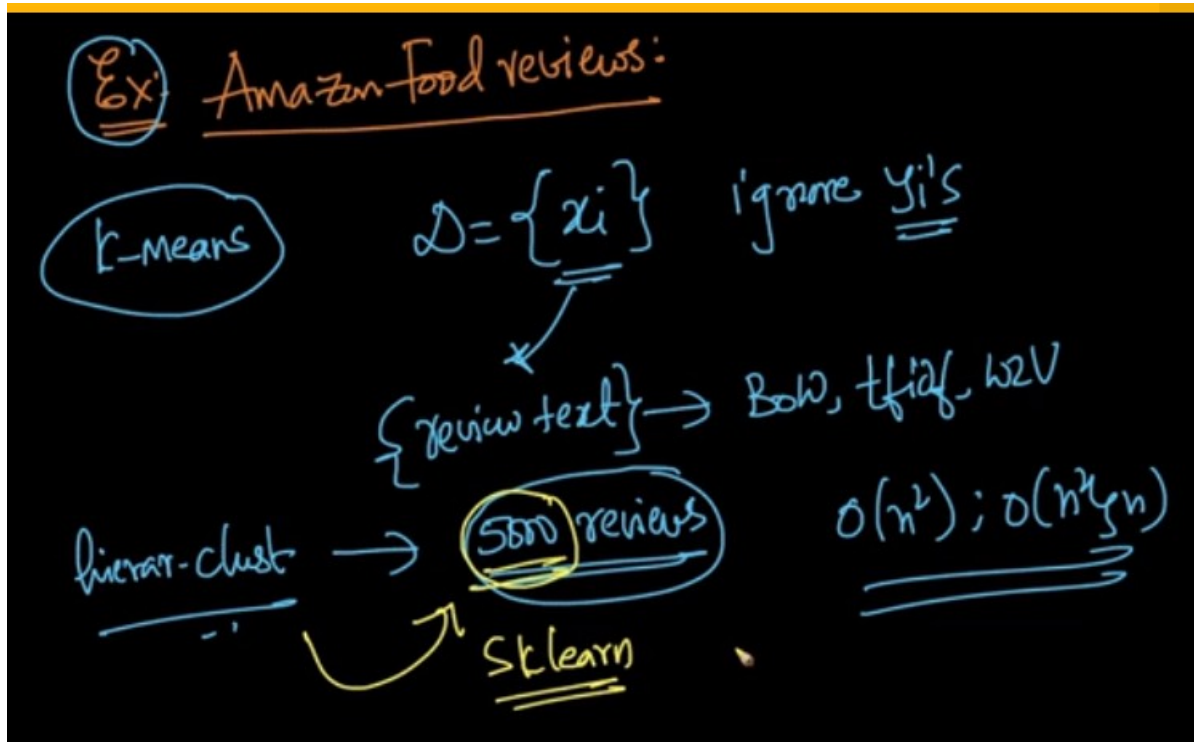 Ex: Amazon Food reviews:
K-Means D = {xi} ignore yi's
{review text} → BoW, tfidf, W2V
hierar-clust → 5000 reviews O(n²); O(n² lg n)
Sklearn